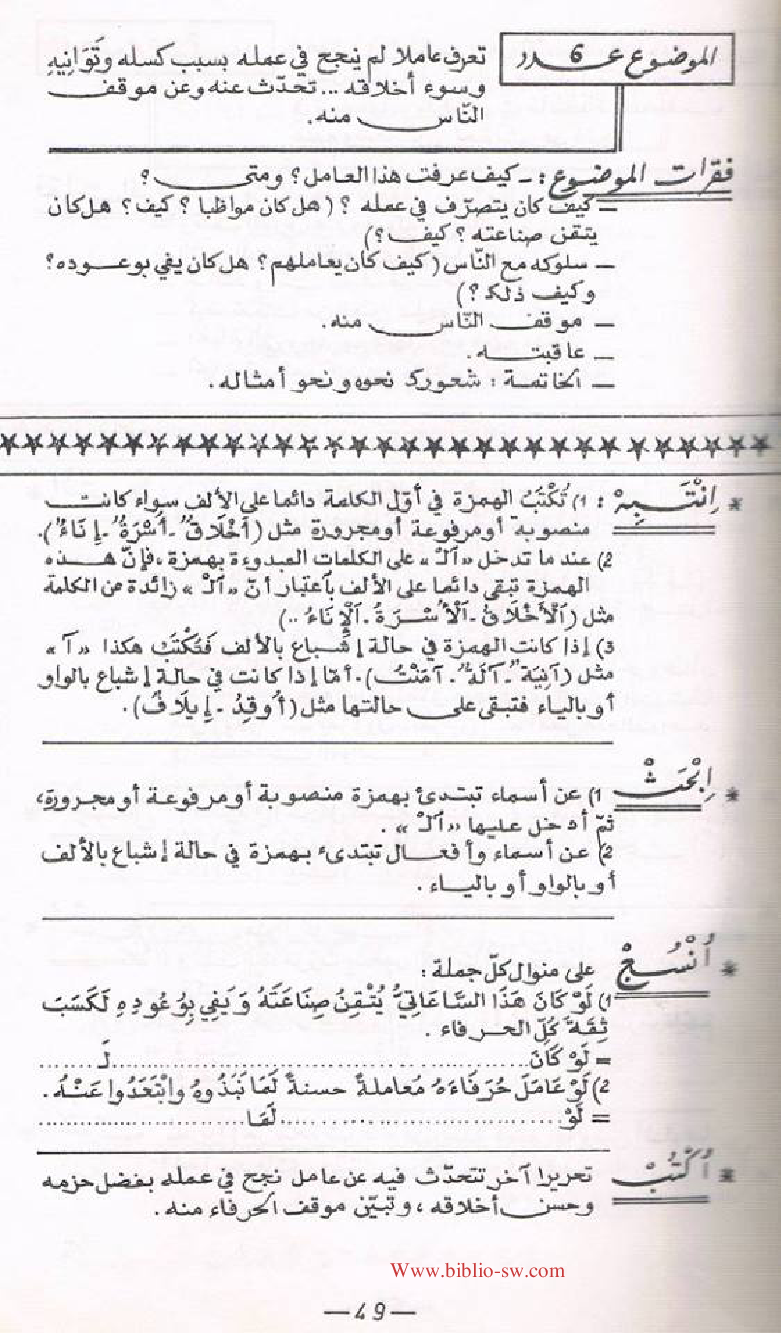 الموضوع عـدد 6
تعرف عاملا لم ينجح في عمله بسبب كسله وتَوَانِيهِ
وسوء أخلاقه ... تحدّث عنه وعن موقف
النّاس منه.
فقرات الموضوع : ـ كيف عرفت هذا العامل؟ ومتى؟
ـ كيف كان يتصرّف في عمله ؟ ( هل كان مواظبا ؟ كيف؟ هل كان
يتقن صناعته ؟ كيف ؟)
ـ سلوكه مع النّاس ( كيف كان يعاملهم؟ هل كان يفي بوعوده؟
وكيف ذلك ؟)
ـ موقف النّاس منه.
ـ عاقبته.
ـ الخاتمة : شعورك نحوه ونحو أمثاله.
* اِنْتَبِهْ : 1) تُكْتَبُ الهمزة في أوّل الكلمة دائما على الألف سواء كانت
منصوبة أو مرفوعة أو مجرورة مثل (أَخْلَاقٌ ـ أُسْرَةٌ ـ إِنَاءٌ).
2) عند ما تدخل «اَلْـ» على الكلمات المبدوءة بهمزة، فإنّ هذه
الهمزة تبقى دائما على الألف بآعتبار أنّ «اَلْـ» زائدة عن الكلمة
مثل (اَلْأَخْلَاقُ ـ اَلْأُسْرَةُ ـ اَلْإِنَاءُ ..)
3) إذا كانت الهمزة في حالة إشباع بالألف فَتُكْتَبُ هكذا «آ»
مثل (آنِيَةٌ ـ آلَةٌ ـ آمَنْتُ). أمّا إذا كانت في حالة إشباع بالواو
أو بالياء فتبقى على حالتها مثل (أُوقِدُ ـ إِيلَافُ).
* اِبْحَثْ 1) عن أسماء تبتدئ بهمزة منصوبة أو مرفوعة أو مجرورة،
ثمّ أدخل عليها «اَلْـ» .
2) عن أسماء وأفعال تبتدىء بهمزة في حالة إشباع بالألف
أو بالواو أو بالياء .
* اُنْسُجْ على منوال كلّ جملة :
1) لَوْ كَانَ هَذَا السَّاعَاتِيُّ يُتْقِنُ صِنَاعَتَهُ وَيَفِي بِوُعُودِهِ لَكَسَبَ
ثِقَةَ كُلِّ الحرفاء .
= لَوْ كَانَ ........................................ لَـ ........
2) لَوْ عَامَلَ حُرَفَاءَهُ مُعاملةً حسنةً لَمَا نَبَذُوهُ وابْتَعَدُوا عَنْهُ.
= لَوْ ........................................ لَمَا ........................
* اُكْتُبْ تحريرا آخر تتحدّث فيه عن عامل نجح في عمله بفضل حزمه
وحسن أخلاقه ، وتبيّن موقف الحرفاء منه .
Www.biblio-sw.com
—49—